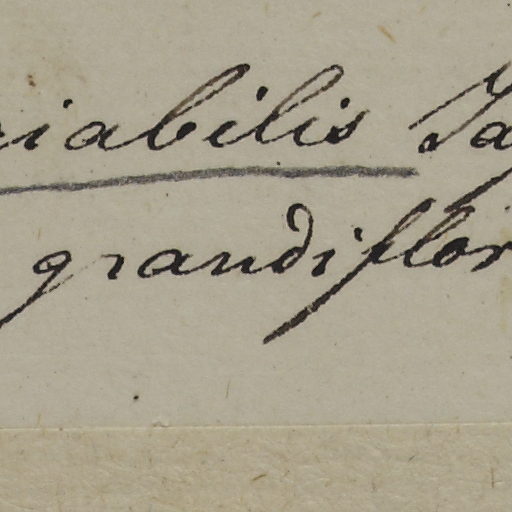 riabilis Ja
grandiflor